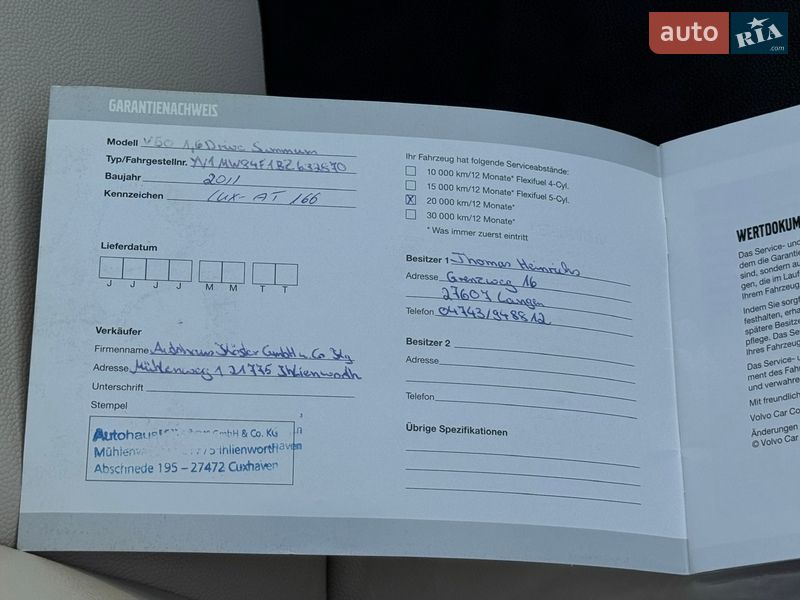 auto RIA .com
GARANTIENACHWEIS
Modell V50 1,6 Drive Summum
Typ/Fahrgestellnr. YV1MW84F1B2632870
Baujahr 2011
Kennzeichen CUX-AT 166
Lieferdatum
J J J J M M T T
Verkäufer
Firmenname Autohaus GmbH u. Co Kg
Adresse Mühlenweg 1 21775 Ihlienworth
Unterschrift
Stempel
Autohaus GmbH & Co. KG
Ihlienworth
Abschnede 195 – 27472 Cuxhaven
Ihr Fahrzeug hat folgende Serviceabstände:
10 000 km/12 Monate* Flexifuel 4-Cyl.
15 000 km/12 Monate* Flexifuel 5-Cyl.
X 20 000 km/12 Monate*
30 000 km/12 Monate*
* Was immer zuerst eintritt
Besitzer 1 Thomas Heinrichs
Adresse Grenzweg 16
27607 Langen
Telefon 04743/948812
Besitzer 2
Adresse
Telefon
Übrige Spezifikationen
WERTDOKUM
Das Service- und
dem die Garantie
sind, sondern au
gen, die im Lauf
Ihrem Fahrzeug
Indem Sie sorg
festhalten, erha
spätere Besitze
pflege. Das Se
Ihres Fahrzeug
Das Service- u
ment des Fah
und verwahre
Mit freundlich
Volvo Car Co
Änderungen
© Volvo Car